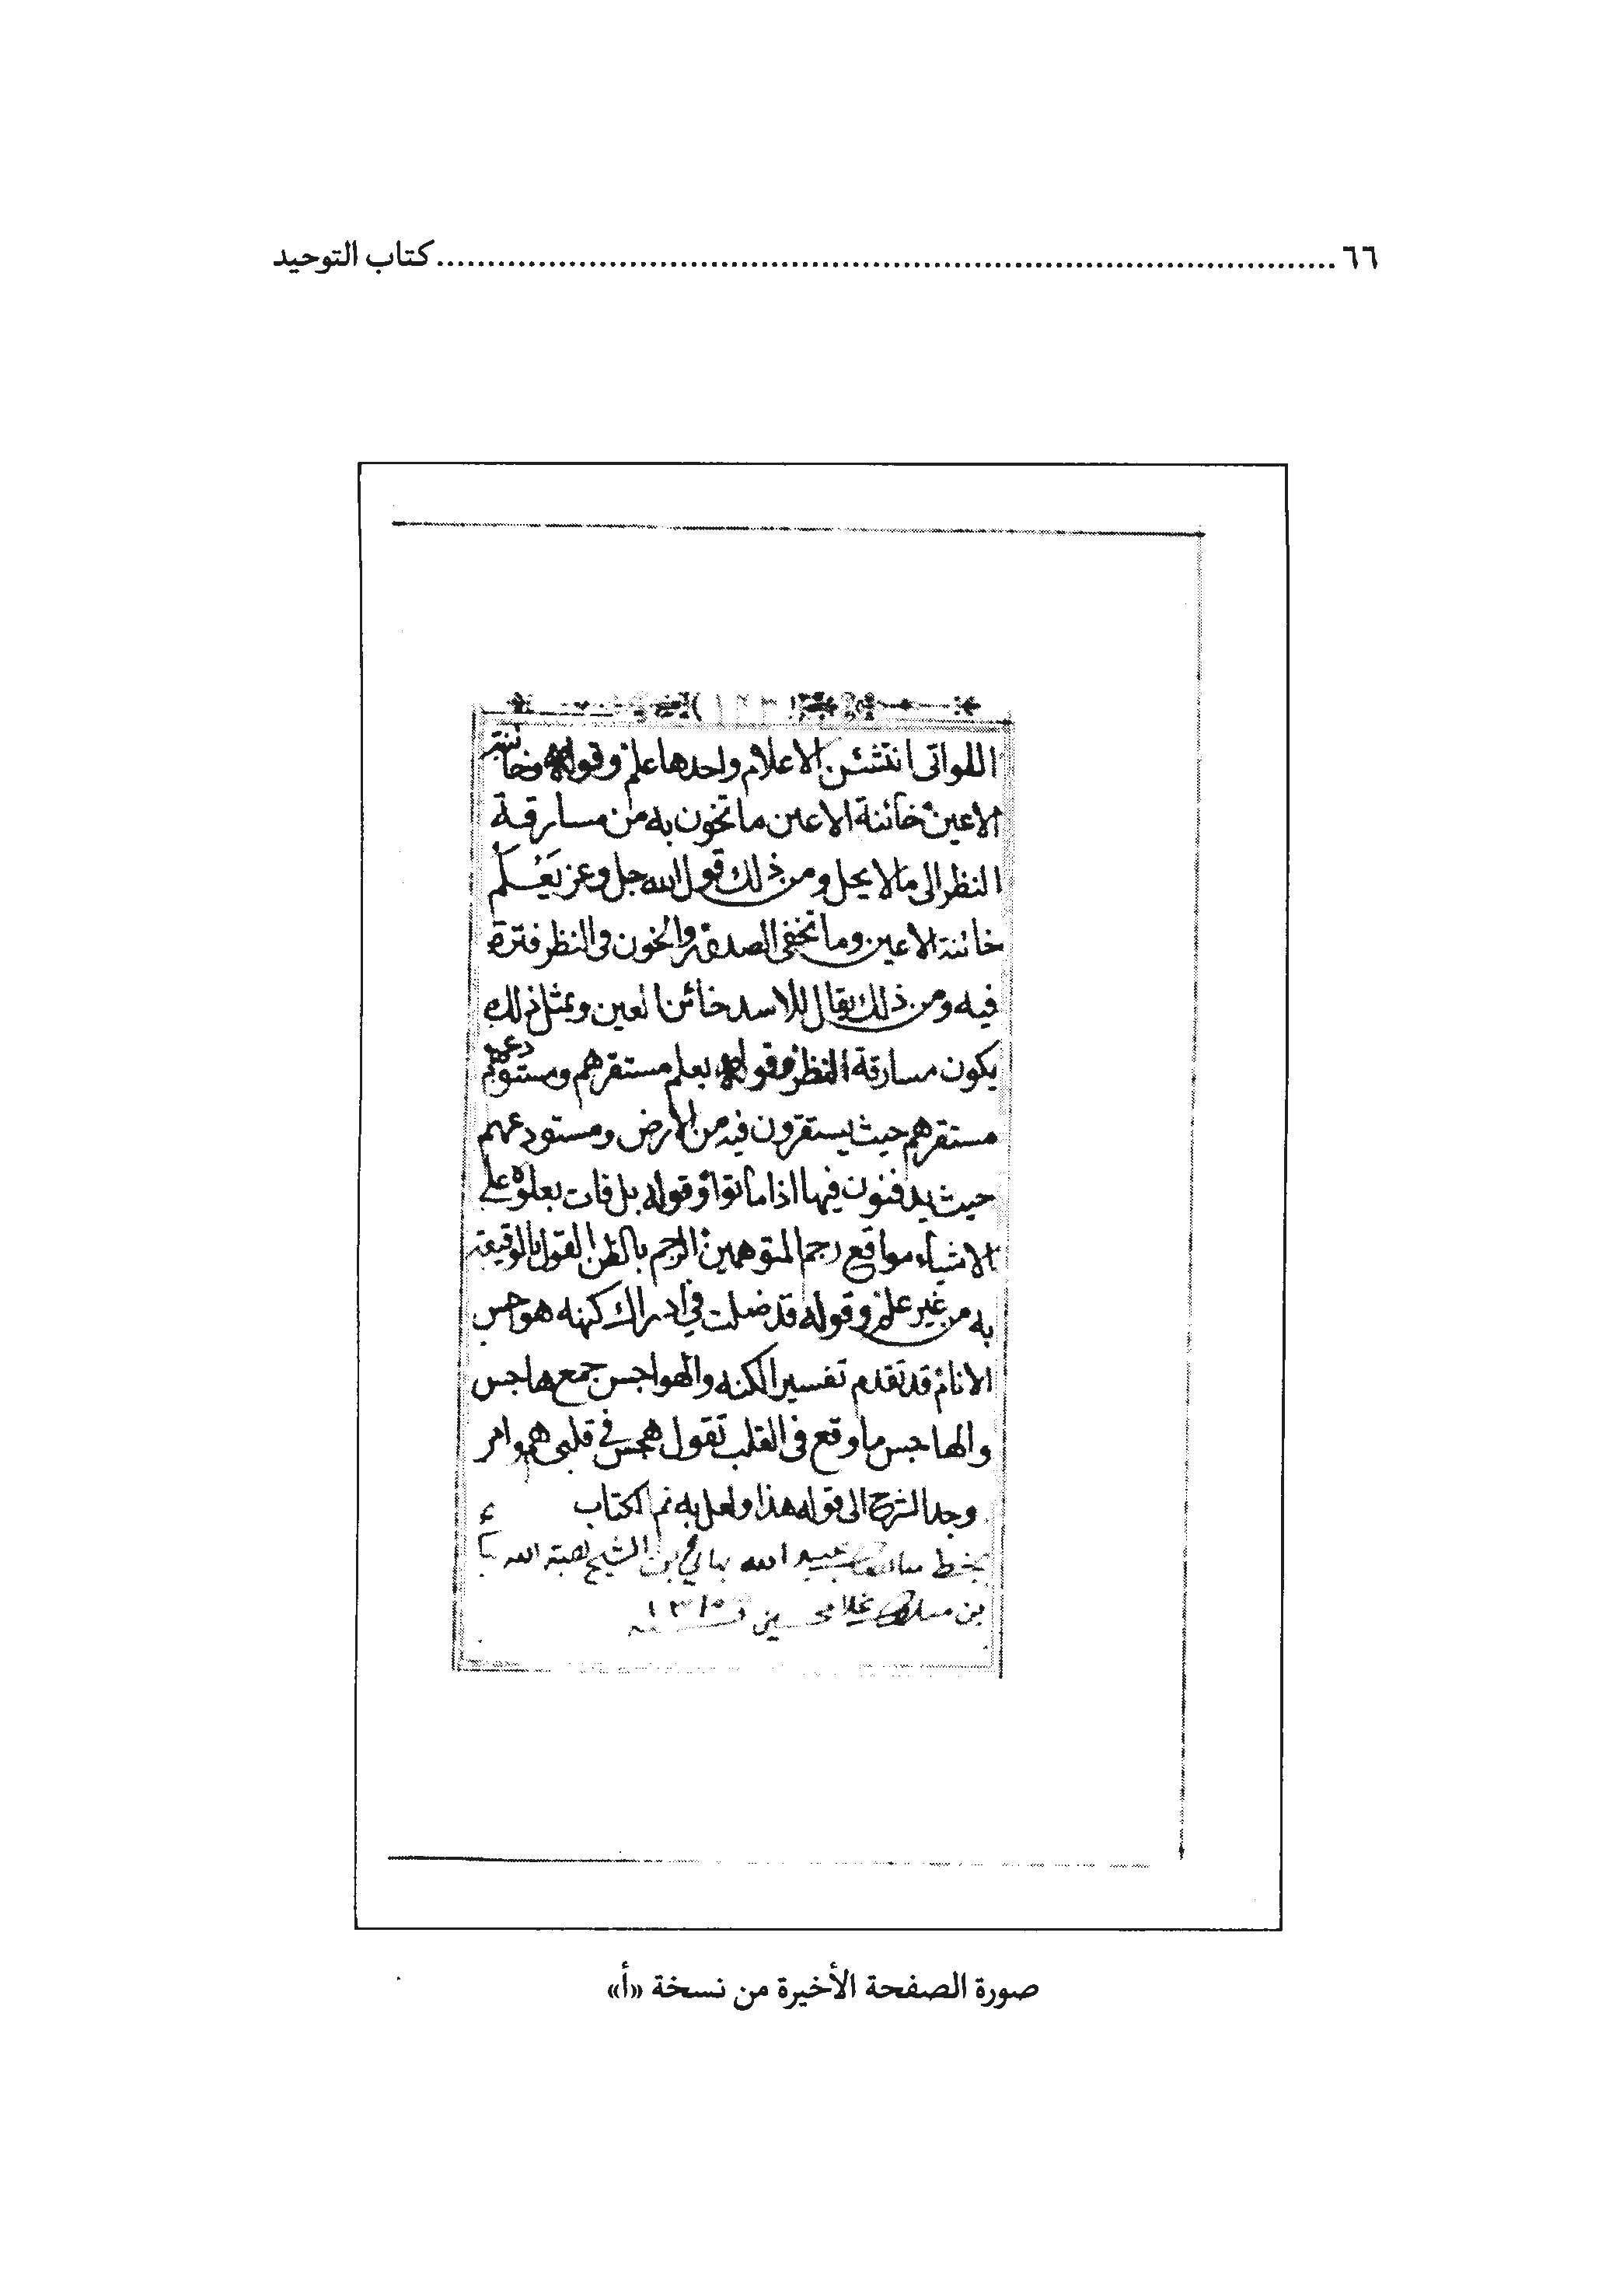 ٦٦ ........ كتاب التوحيد
اللواتى انتشئن الاعلام واحدها علم وقوله وخائنة
الاعين خائنة الاعين ما تخون به من مسارقة
النظر الى ما لا يحل ومن ذلك قول الله جل وعز يَعْلَم
خائنة الاعين وما تخفى الصدور والخون فى النظر فترة
فيه ومن ذلك يقال للاسد خائن العين وبمثل ذلك
يكون مسارقة النظر وقوله يعلم مستقرهم ومستودعهم
مستقرهم حيث يستقرون فيه من الارض ومستودعهم
حيث يدفنون فيها اذا ماتوا وقوله بل فات بعلوه على
الاشياء مواقع رجم المتوهمين الرجم بالظن القول بالوقيعة
به من غير علم وقوله قد ضلت فى ادراك كنهه هواجس
الانام قد تقدم تفسير الكنه والهواجس جمع هاجس
والهاجس ما وقع فى القلب تقول هجس فى قلبى هم وامر
وجد الشرح الى قوله هذا ولعل به تم الكتاب
بخط عبد الله بن الشيخ الله
بن غلام حسين
صورة الصفحة الأخيرة من نسخة «أ»